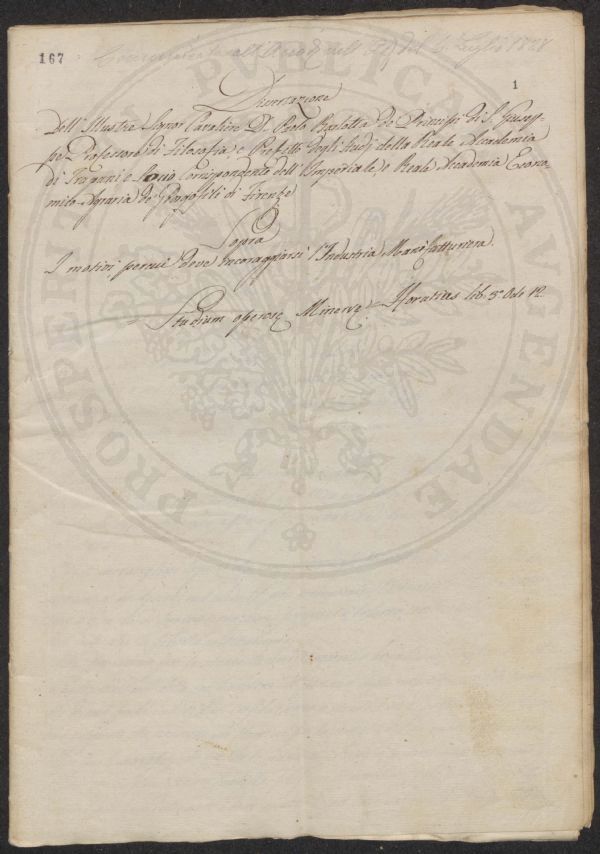 167
Comunicata all'Accad. nell' del 6. Luglio 1828
1
Dissertazione
Dell' Illustre Signor Cavaliere D. Paolo Barlotta de Principi di S. Giusep-
pe Professore di Filosofia, e Prefetto degli studj della Reale Accademia
di Trapani e Socio Corrispondente dell' Imperiale, e Reale Accademia Econo-
mico-Agraria de' Georgofili di Firenze
Sopra
I motivi perche deve incoraggiarsi l'Industria Manifatturiera.
= Studium operosę Minervę = Horatius lib. 3.° Ode 12.
PROSPERITATI PUBLICAE AUGENDAE